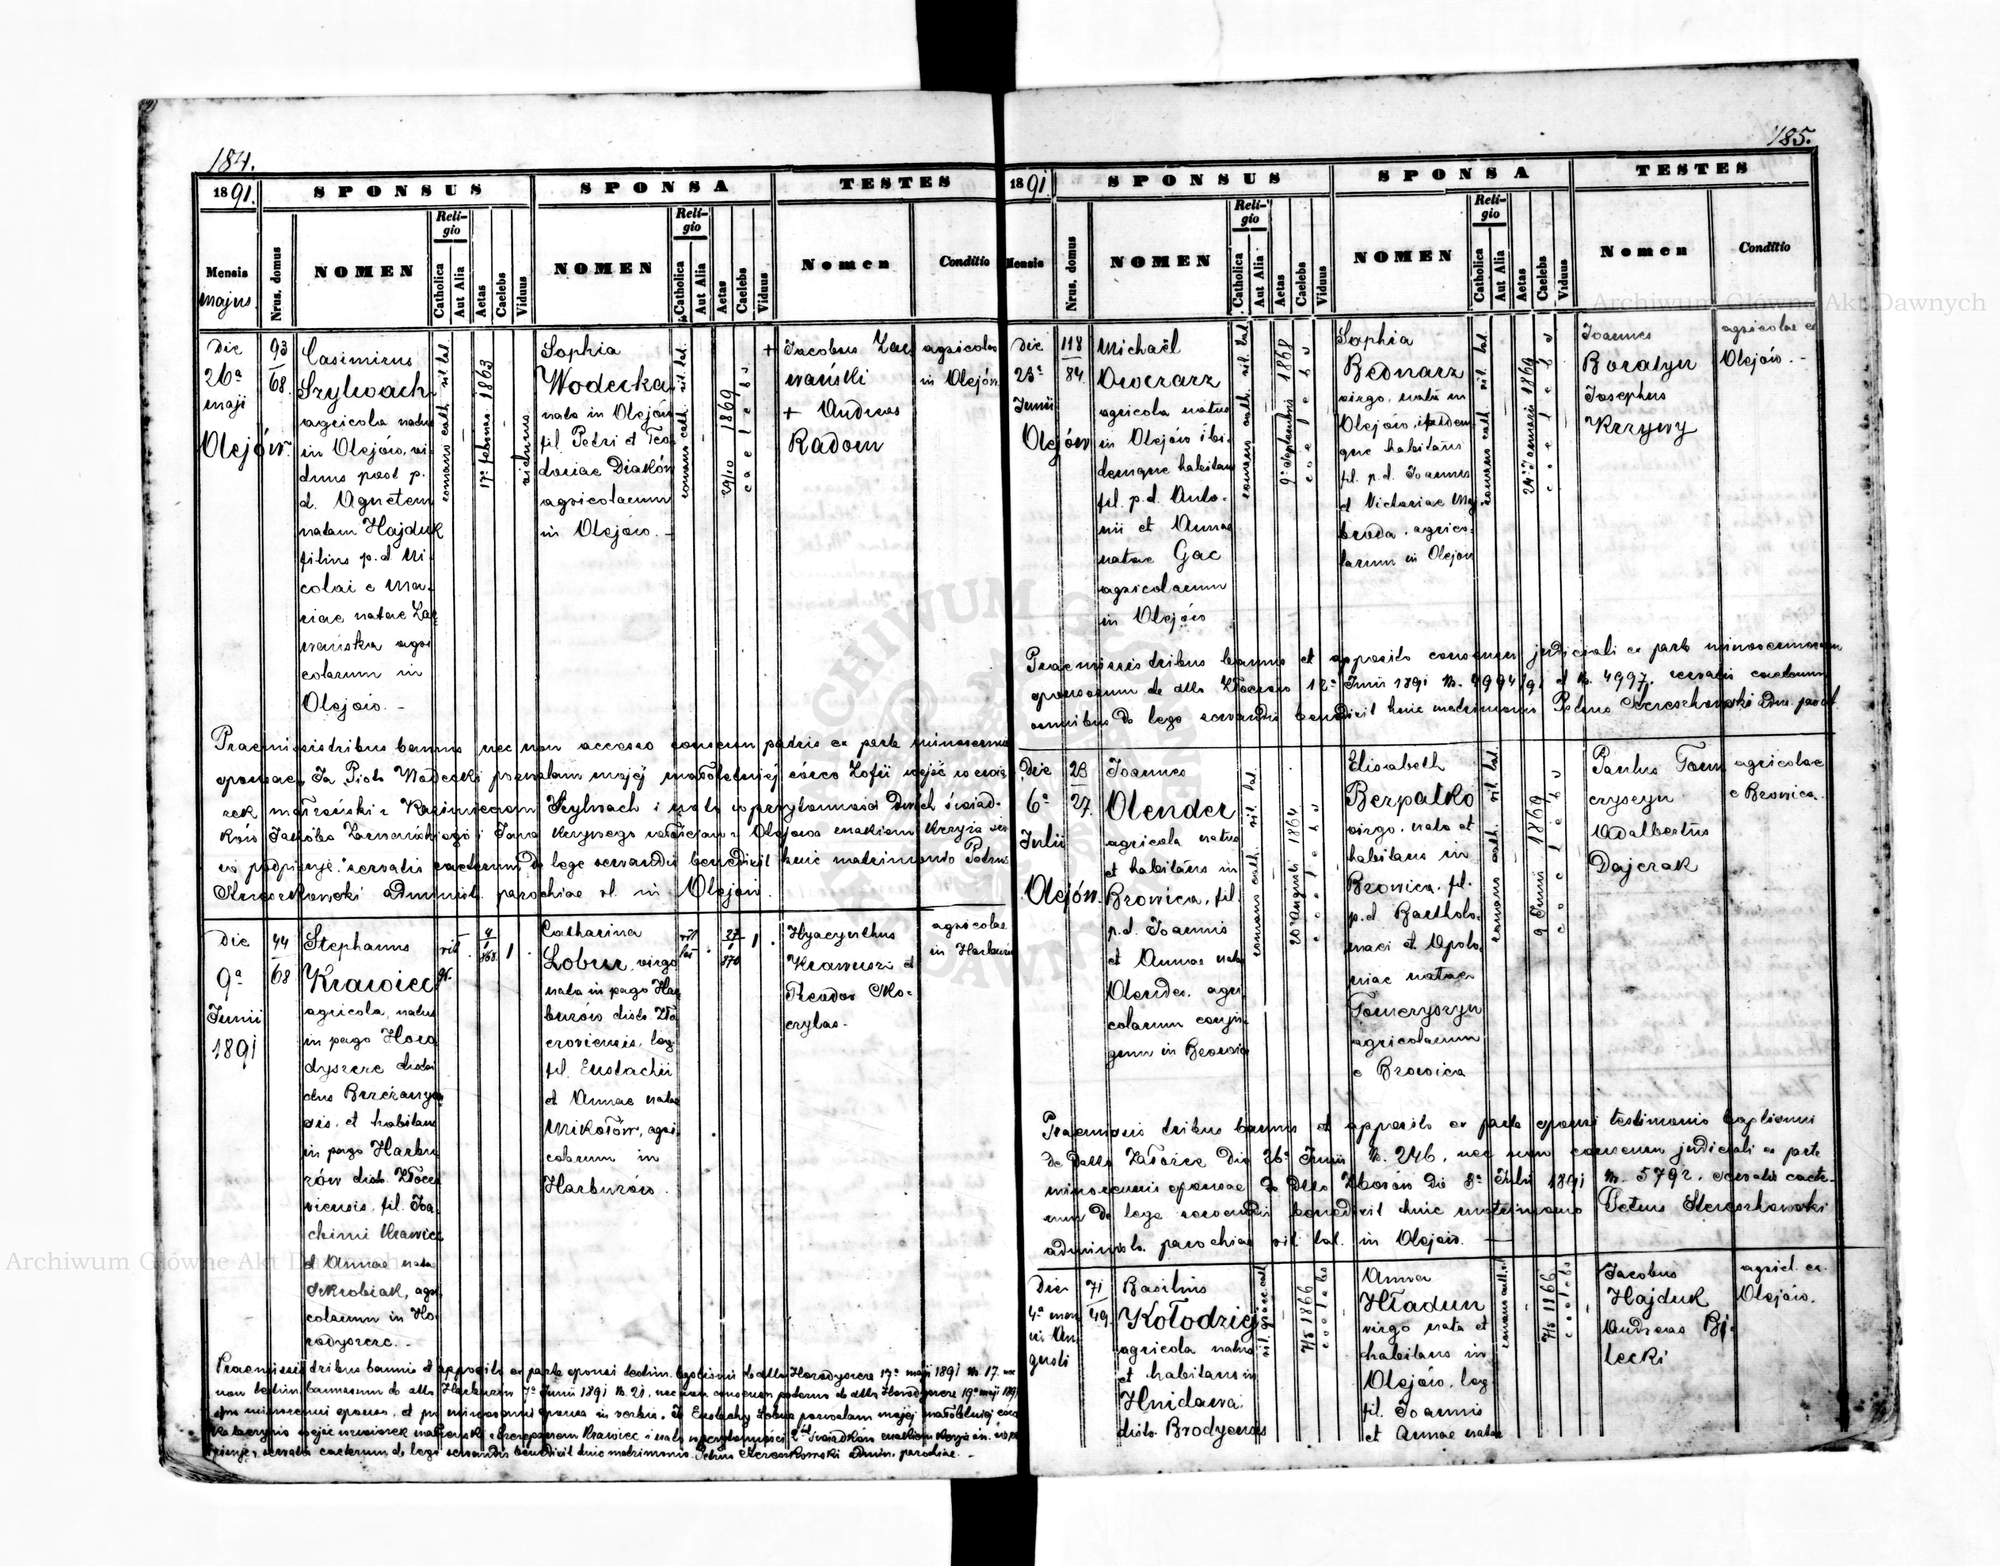 184.
1891.
SPONSUS
SPONSA
TESTES
Mensis
majus
Nrus. domus
NOMEN
Religio
Catholica
Aut Alia
Aetas
Caelebs
Viduus
NOMEN
Religio
Catholica
Aut Alia
Aetas
Caelebs
Viduus
Nomen
Conditio
Die
26a
maji
Olejów
93
68.
Casimirus
Szylwach
agricola natus
in Olejów, vi-
duus post p.
d. Agnetem
natam Hajduk
filius p.d Ni-
colai e Ma-
riae natae Za
wańska agri
colarum in
Olejów. -
romano cath. rit. lat.
17a februar. 1863
viduus
Sophia
Wodecka
nata in Olejów
fil. Petri et Teo
doriae Diaków
agricolarum
in Olejów. -
romano cath. rit. lat.
29/10 1869
caelebs
+ Jacobus Zar
wański
+ Andreas
Radom
agricolae
in Olejów
Praemissis tribus bannis nec non accesso consensu patris ex parte minorennis
sponsae, Ja Piotr Wodecki pozwalam mojéj małoletniéj córce Zofii wejść w zwią
zek małżeński z Kazimierzem Szylwach i w przytomności dwóch świad-
ków Jakóba Zarwańskiego i Jana Krzywego z Olejowa znakiem krzyża
podpisuję. servatis caeterum de lege servandis benedixit huic matrimonio Petrus
administ. parochiae rl. in Olejów.
Die
9a
Junii
1891
44
68
Stephanus
Krawiec
agricola, natus
in pago Horo
dyszcze distri
ctus Brzeżanyen
sis, et habitans
in pago Harbu
zów distr. Złoczo
viensis, fil. Joa
chimi Krawiec
et Annae nata
Skrobiak, agri
colarum in Ho
rodyszcze. -
rit.
gr.
1
Catharina
Lobur, virgo
nata in pago Har
buzów distr. Zło
czoviensis, leg
fil. Eustachii
et Annae nata
Mikołów, agri
colarum in
Harbuzów.
rit
27
1
870
1
Hyacynthus
Krawiszi et
Theodor Sko-
czylas.
agricolae
in Harbuzów
Praemissis tribus bannis et apposito ex parte sponsi testim. baptismi de dto Horodyszcze 17a maji 1891 N. 17. nec
non testim. bannorum de dto Harbuzów 7a Junii 1891 N. 21, nec non consensu paterno de dto Horodyszcze 19a maji 1891
minorenni sponsae in verbis. Ja Eustachy Lobur pozwalam mojej małoletniej córce
Katarzynie wejść w związek małżeński z Szczepanem Krawiec i w przytomności 2ch świadków znakiem krzyża
servatis caeterum de lege servandis benedixit huic matrimonio. Petrus admin. parochiae. -
185.
1891.
SPONSUS
SPONSA
TESTES
Mensis
Nrus. domus
NOMEN
Religio
Catholica
Aut Alia
Aetas
Caelebs
Viduus
NOMEN
Religio
Catholica
Aut Alia
Aetas
Caelebs
Viduus
Nomen
Conditio
Die
23a
Junii
Olejów
118
84.
Michaël
Owczarz
agricola natus
in Olejów ibi-
demque habitans
fil. p.d. Anto-
nii et Annae
natae Gac
agricolarum
in Olejów
romano cath. rit. lat.
9a Septembris 1868
coelebs
Sophia
Bednarz
virgo, nata in
Olejów, ibidem
que habitans
fil. p.d. Joannis
et Victoriae My
broda, agrico-
larum in Olejów
romano cath. rit. lat.
24a Januarii 1869
coelebs
Joannes
Boratyn
Josephus
Krzywy
agricolae ex
Olejów. -
Praemissis tribus bannis et apposito consensu judiciali ex parte minorennorum
sponsorum de dto Złoczów 12a Junii 1891 N. 4994/91 et N. 4997, servatis caeterum
omnibus de lege servandis benedixit huic matrimonio Petrus adm. paroch.
Die
6a
Julii
Olejów.
23
27.
Joannes
Olender
agricola natus
et habitans in
Bronica, fil.
p.d. Joannis
et Annae nata
Olender, agri
colarum conju
gum in Bronica
romano cath. rit. lat.
20 augusti 1864
coelebs
Elisabeth
Berpalko
virgo, nata et
habitans in
Bronica, fil.
p.d. Bartholo-
maei et Apolo-
niae natae
Tomczyszyn
agricolarum
e Bronica
romano cath. rit. lat.
9 Junii 1869
coelebs
Paulus Tom
czyszyn
Adalbertus
Dajczak
agricolae
e Bronica.
Praemissis tribus bannis et apposito ex parte sponsi testimonio baptismi
de dato Załoźce die 26a Junii N. 246, nec non consensu judiciali ex parte
minorennis sponsae de dto Zborów die 3a Julii 1891 N. 5792, servatis caete-
rum de lege servandis benedixit huic matrimonio Petrus
administr. parochiae rit. lat. in Olejów. -
Die
4a men
sis Au
gusti
71
49.
Basilius
Kołodziej
agricola natus
et habitans in
Hnidawa
distr. Brodyensis
rit. graec. cath
1866
coelebs
Anna
Hładun
virgo nata et
habitans in
Olejów, leg.
fil. Joannis
et Annae nata
romano cath.
coelebs
Jacobus
Hajduk
Andreas Bi-
lecki
agricl. ex
Olejów.
Archiwum Główne Akt Dawnych
Archiwum Główne Akt Dawnych
ARCHIWUM GŁÓWNE AKT DAWNYCH